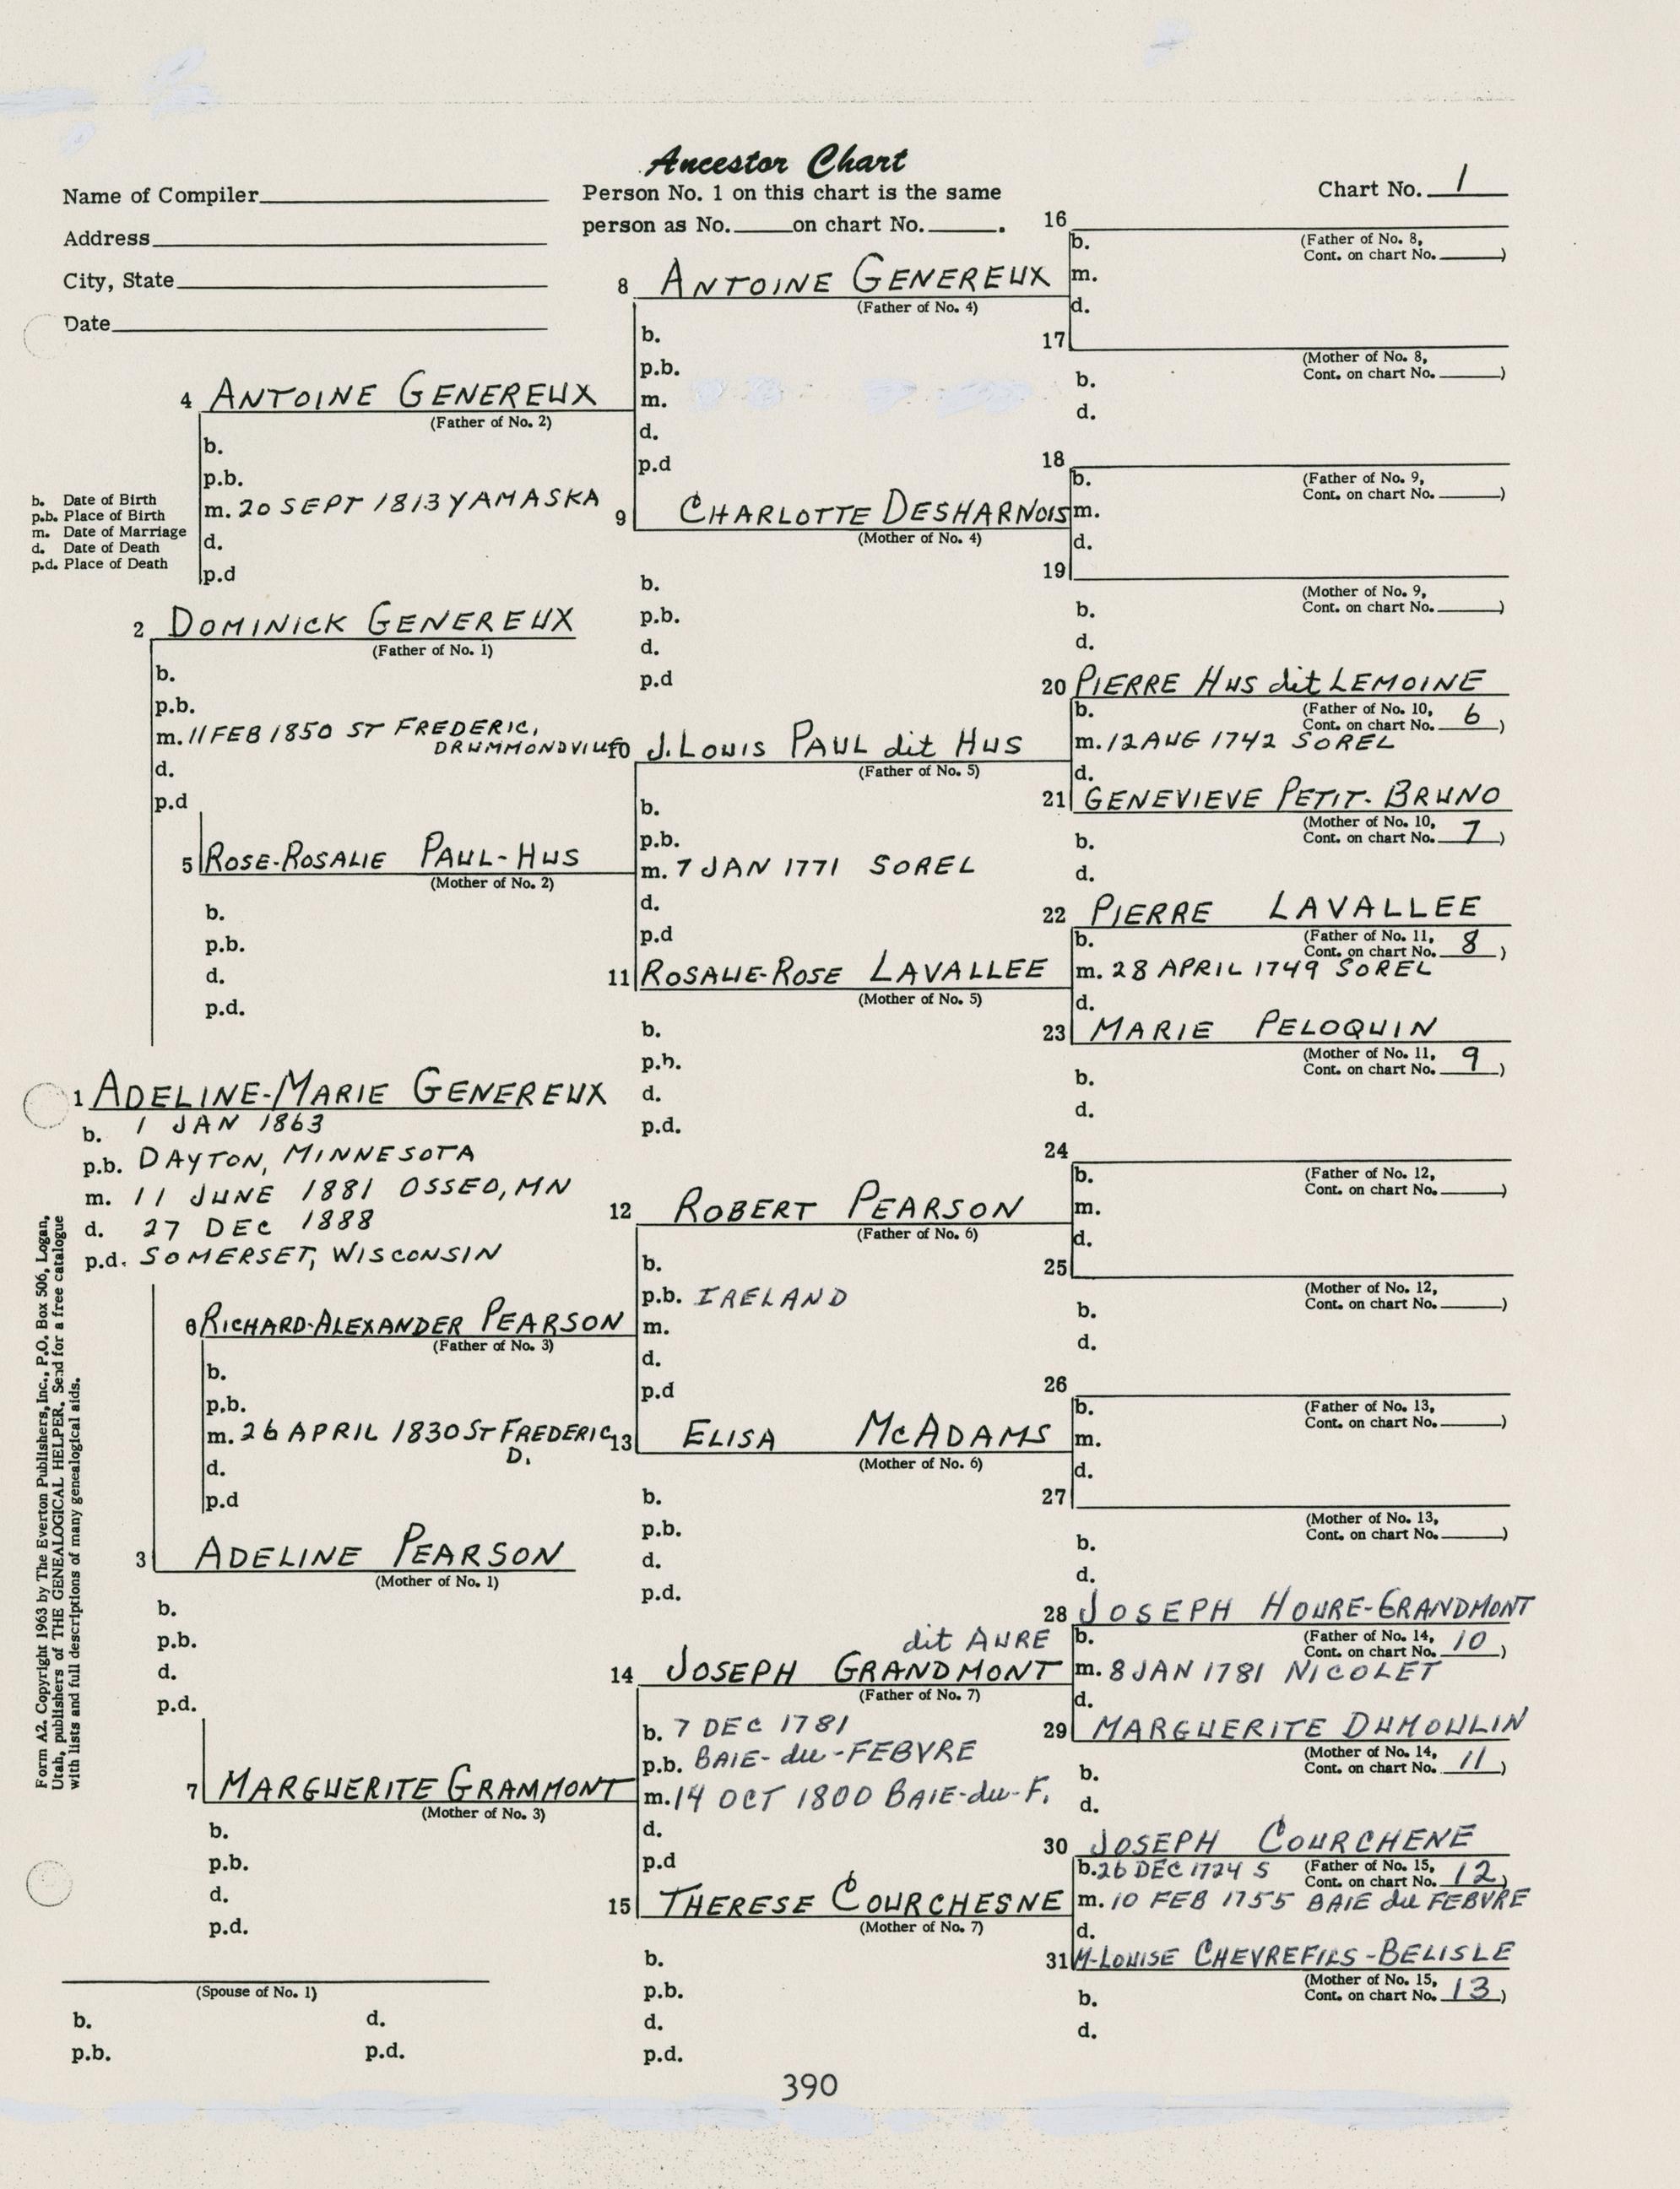 Ancestor Chart
Name of Compiler
Address
City, State
Date
Person No. 1 on this chart is the same
person as No. on chart No. .
Chart No. 1
b. Date of Birth
p.b. Place of Birth
m. Date of Marriage
d. Date of Death
p.d. Place of Death
1 ADELINE-MARIE GENEREUX
b. 1 JAN 1863
p.b. DAYTON, MINNESOTA
m. 11 JUNE 1881 OSSEO, MN
d. 27 DEC 1888
p.d. SOMERSET, WISCONSIN
2 DOMINICK GENEREUX
(Father of No. 1)
b.
p.b.
m. 11 FEB 1850 ST FREDERIC,
DRUMMONDVILLE
d.
p.d
3 ADELINE PEARSON
(Mother of No. 1)
b.
p.b.
d.
p.d.
4 ANTOINE GENEREUX
(Father of No. 2)
b.
p.b.
m. 20 SEPT 1813 YAMASKA
d.
p.d
5 ROSE-ROSALIE PAUL-HUS
(Mother of No. 2)
b.
p.b.
d.
p.d.
6 RICHARD-ALEXANDER PEARSON
(Father of No. 3)
b.
p.b.
m. 26 APRIL 1830 ST FREDERIC
D.
d.
p.d
7 MARGUERITE GRAMMONT
(Mother of No. 3)
b.
p.b.
d.
p.d.
8 ANTOINE GENEREUX
(Father of No. 4)
b.
p.b.
m.
d.
p.d
9 CHARLOTTE DESHARNOIS
(Mother of No. 4)
b.
p.b.
d.
p.d
10 J. LOUIS PAUL dit HUS
(Father of No. 5)
b.
p.b.
m. 7 JAN 1771 SOREL
d.
p.d
11 ROSALIE-ROSE LAVALLEE
(Mother of No. 5)
b.
p.b.
d.
p.d.
12 ROBERT PEARSON
(Father of No. 6)
b.
p.b. IRELAND
m.
d.
p.d
13 ELISA McADAMS
(Mother of No. 6)
b.
p.b.
d.
p.d.
dit AURE
14 JOSEPH GRANDMONT
(Father of No. 7)
b. 7 DEC 1781
p.b. BAIE-du-FEBVRE
m. 14 OCT 1800 BAIE-du-F.
d.
p.d
15 THERESE COURCHESNE
(Mother of No. 7)
b.
p.b.
d.
p.d.
16
b. (Father of No. 8,
Cont. on chart No. )
m.
d.
17
(Mother of No. 8,
Cont. on chart No. )
b.
d.
18
b. (Father of No. 9,
Cont. on chart No. )
m.
d.
19
(Mother of No. 9,
Cont. on chart No. )
b.
d.
20 PIERRE HUS dit LEMOINE
b. (Father of No. 10,
Cont. on chart No. 6 )
m. 12 AUG 1742 SOREL
d.
21 GENEVIEVE PETIT-BRUNO
(Mother of No. 10,
Cont. on chart No. 7 )
b.
d.
22 PIERRE LAVALLEE
b. (Father of No. 11,
Cont. on chart No. 8 )
m. 28 APRIL 1749 SOREL
d.
23 MARIE PELOQUIN
(Mother of No. 11,
Cont. on chart No. 9 )
b.
d.
24
b. (Father of No. 12,
Cont. on chart No. )
m.
d.
25
(Mother of No. 12,
Cont. on chart No. )
b.
d.
26
b. (Father of No. 13,
Cont. on chart No. )
m.
d.
27
(Mother of No. 13,
Cont. on chart No. )
b.
d.
28 JOSEPH HOURE-GRANDMONT
b. (Father of No. 14,
Cont. on chart No. 10 )
m. 8 JAN 1781 NICOLET
d.
29 MARGUERITE DUMOULIN
(Mother of No. 14,
Cont. on chart No. 11 )
b.
d.
30 JOSEPH COURCHENE
b. 26 DEC 1724 S (Father of No. 15,
Cont. on chart No. 12 )
m. 10 FEB 1755 BAIE du FEBVRE
d.
31 M-LOUISE CHEVREFILS-BELISLE
(Mother of No. 15,
Cont. on chart No. 13 )
b.
d.
(Spouse of No. 1)
b. d.
p.b. p.d.
Form A2. Copyright 1963 by The Everton Publishers, Inc., P.O. Box 506, Logan,
Utah, publishers of THE GENEALOGICAL HELPER. Send for a free catalogue
with lists and full descriptions of many genealogical aids.
390